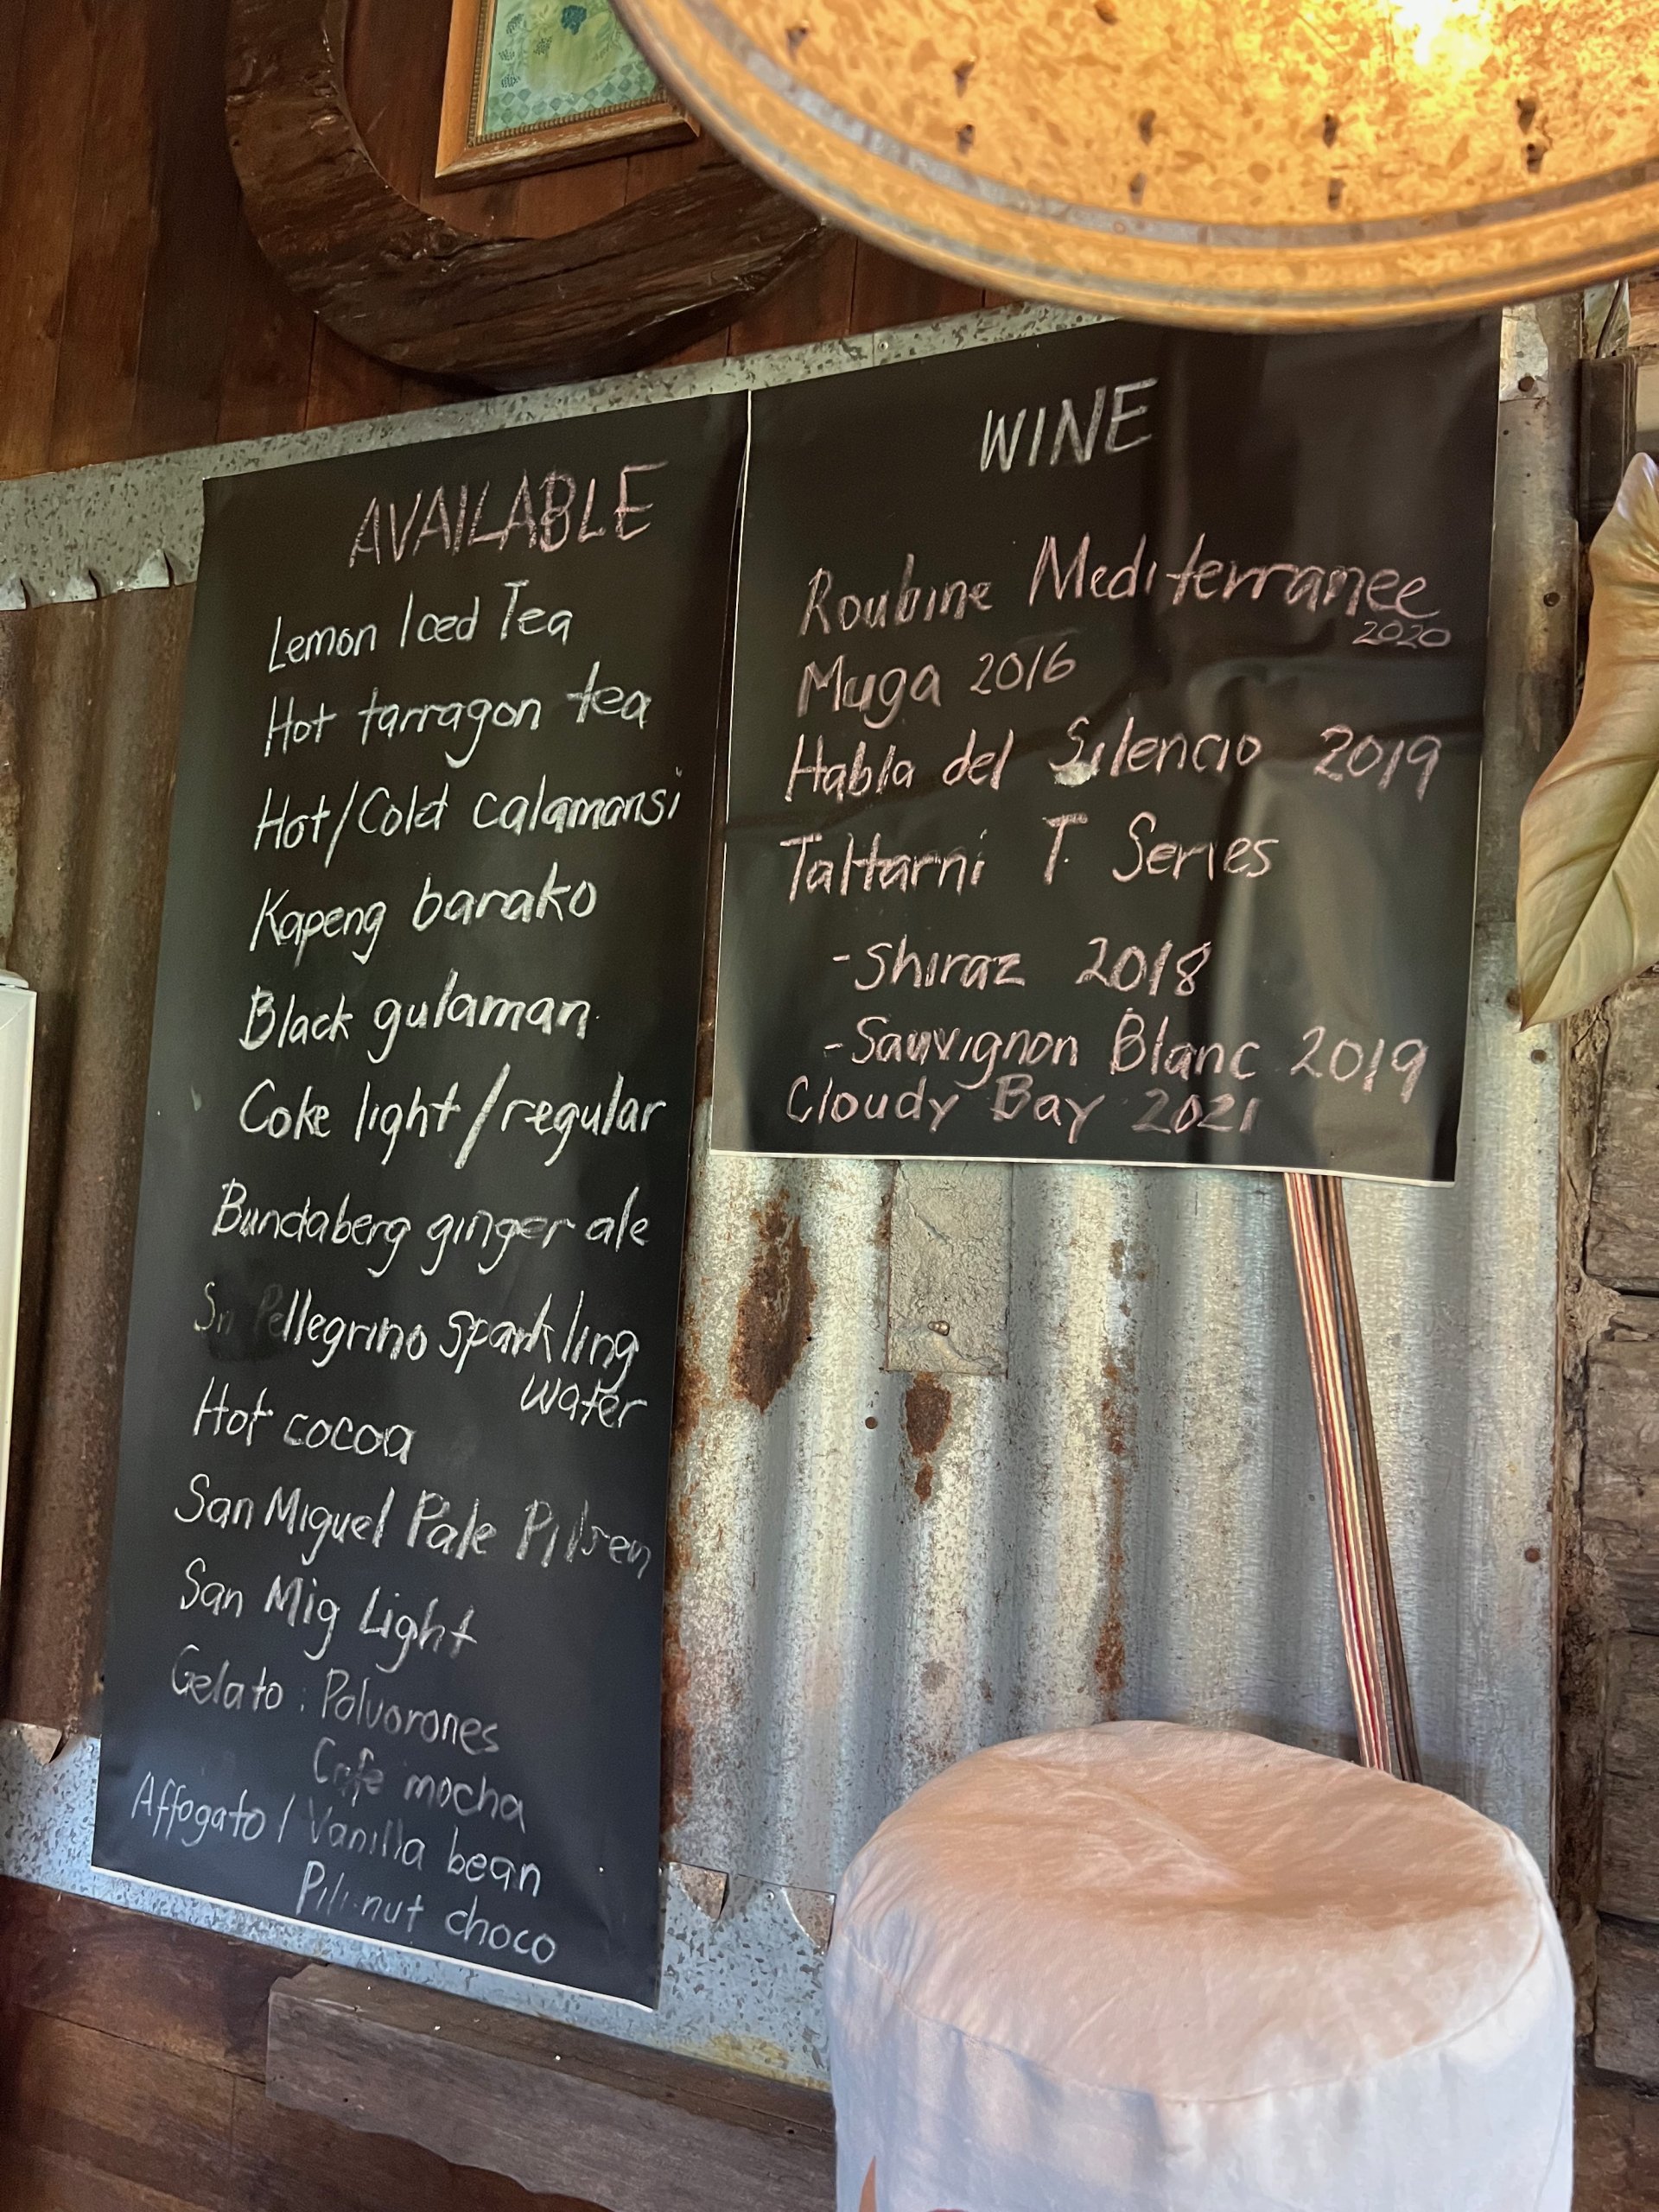 AVAILABLE
Lemon Iced Tea
Hot tarragon tea
Hot/Cold calamansi
Kapeng barako
Black gulaman
Coke light/regular
Bundaberg ginger ale
Sn Pellegrino sparkling
water
Hot cocoa
San Miguel Pale Pilsen
San Mig Light
Gelato : Polvorones
Cafe mocha
Affogato / Vanilla bean
Pili nut choco
WINE
Roubine Mediterranee
2020
Muga 2016
Habla del Silencio 2019
Taltarni T Series
-Shiraz 2018
-Sauvignon Blanc 2019
Cloudy Bay 2021